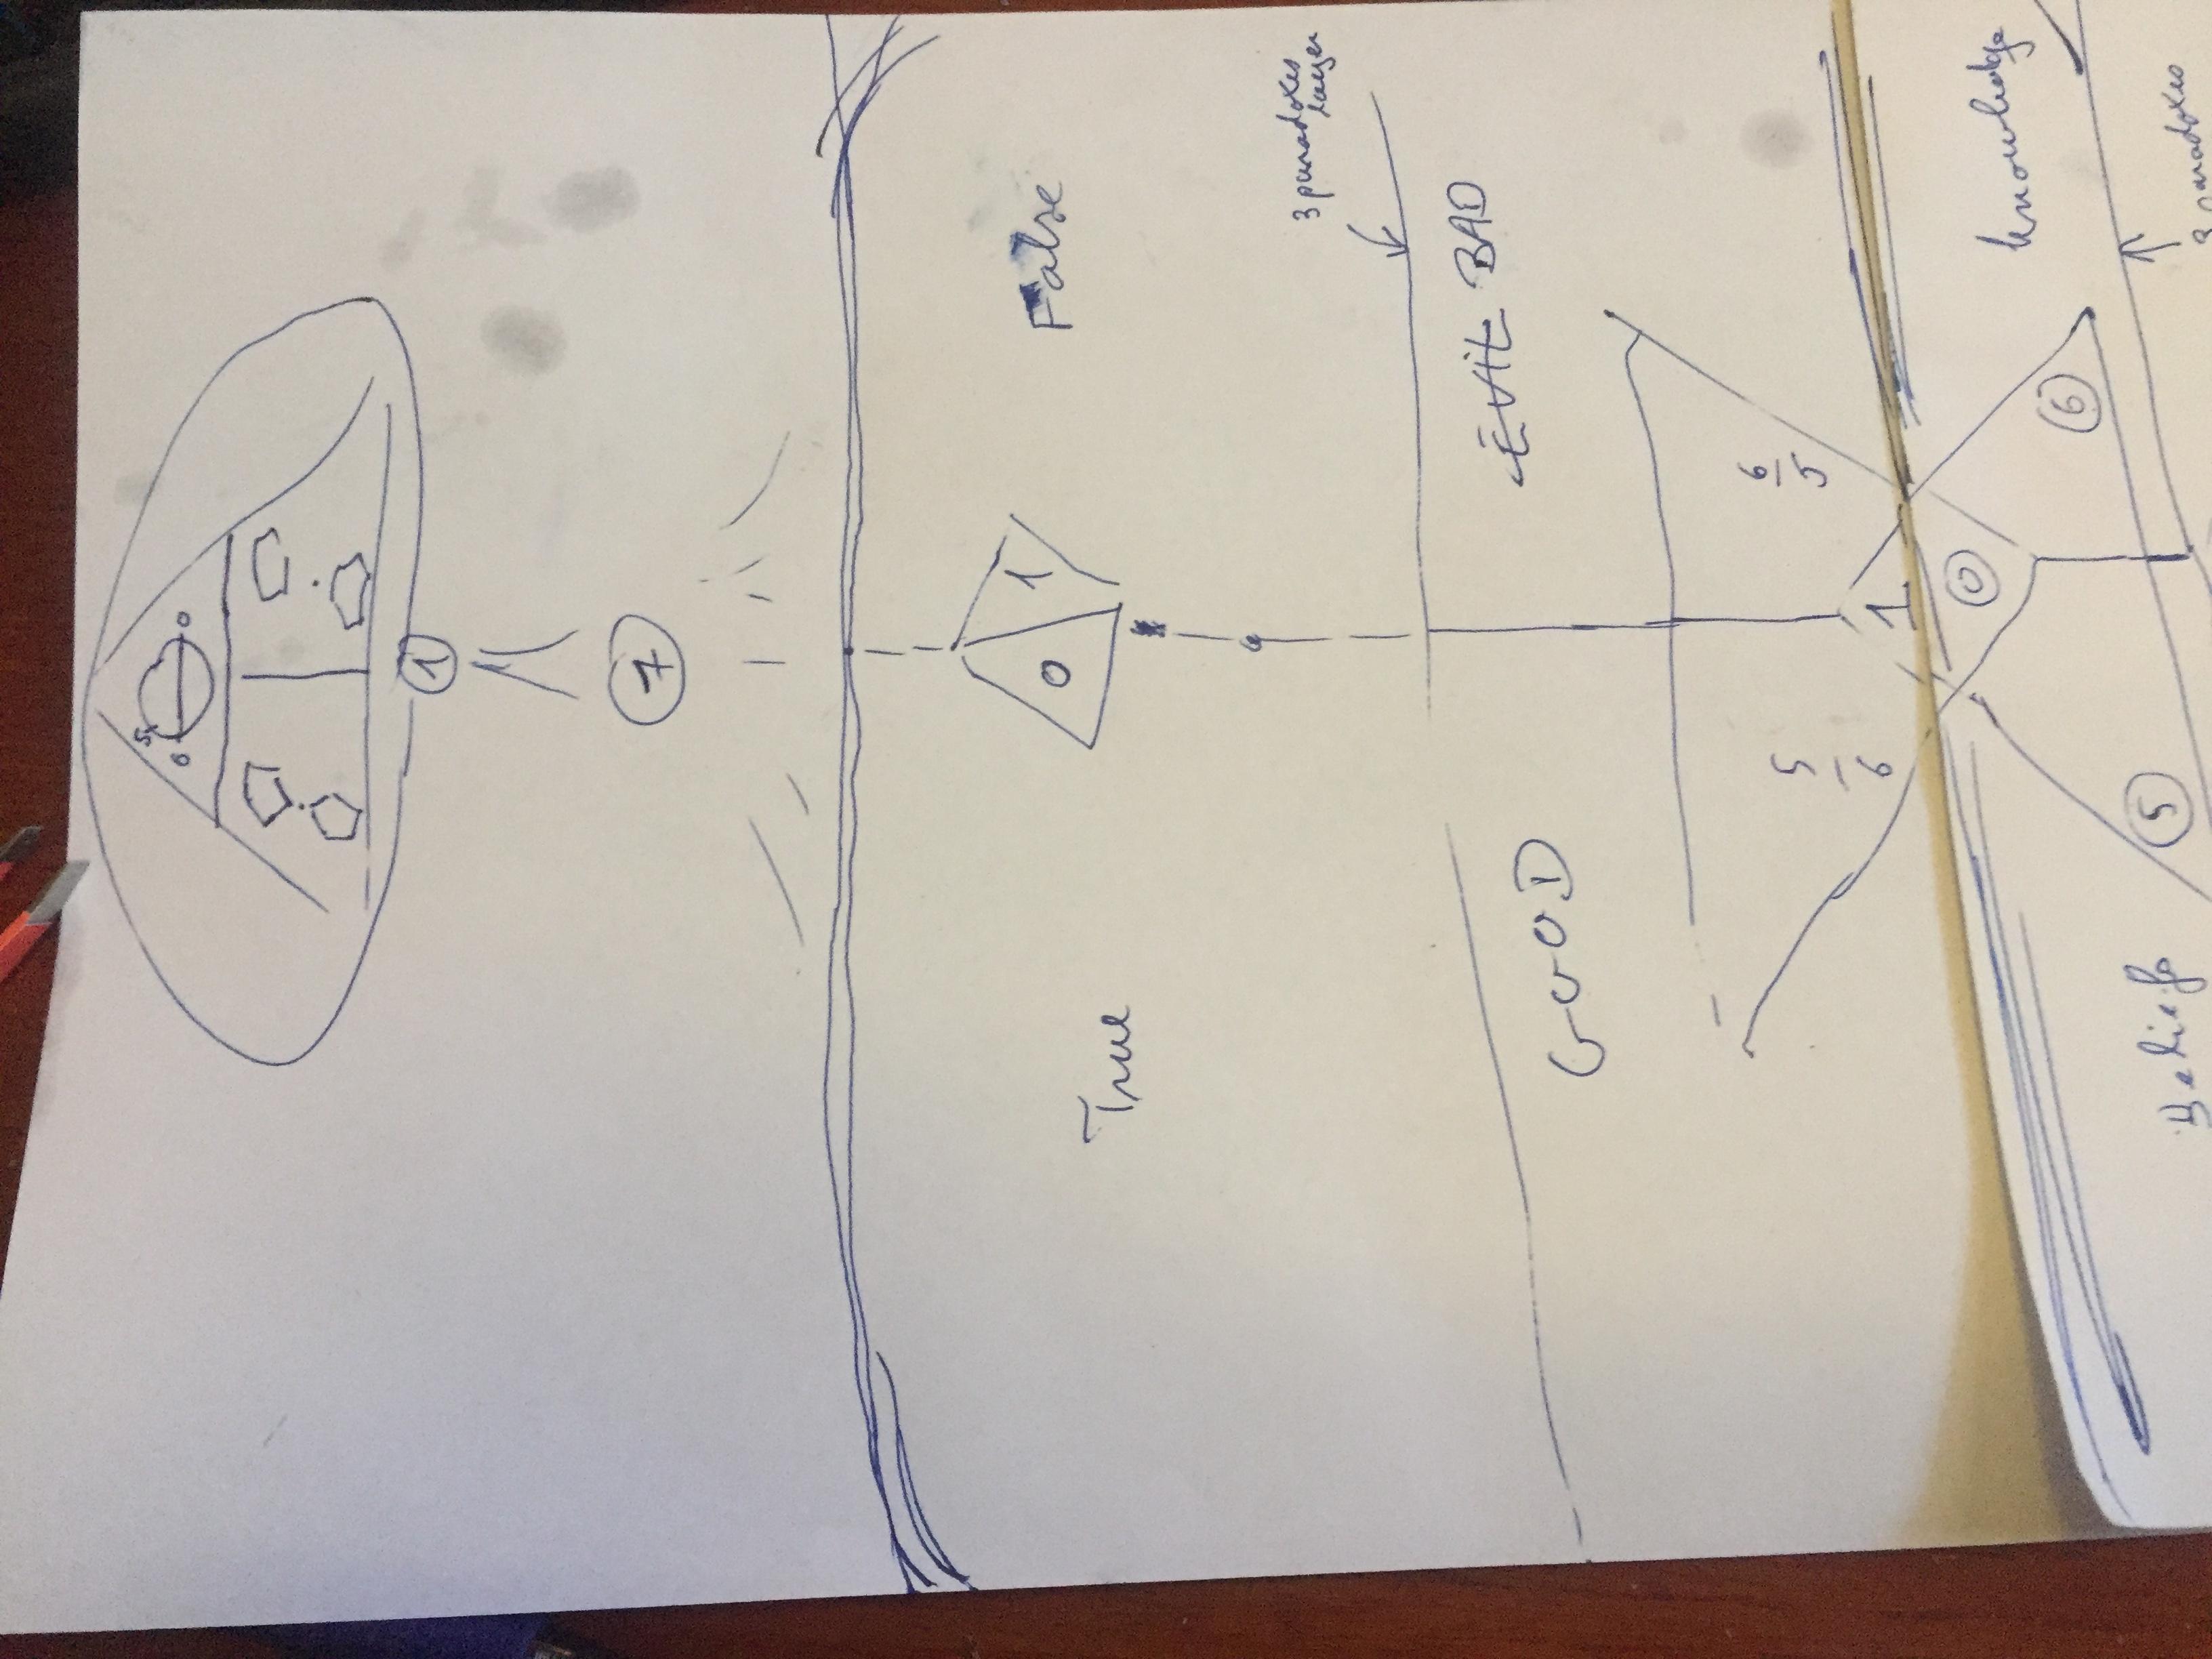 5
0 0
1
7
0
1
True
False
3 paradoxes
layer
GOOD
EVIL BAD
5
6
6
5
1
0
knowledge
6
5
Beliefs
3 paradoxes